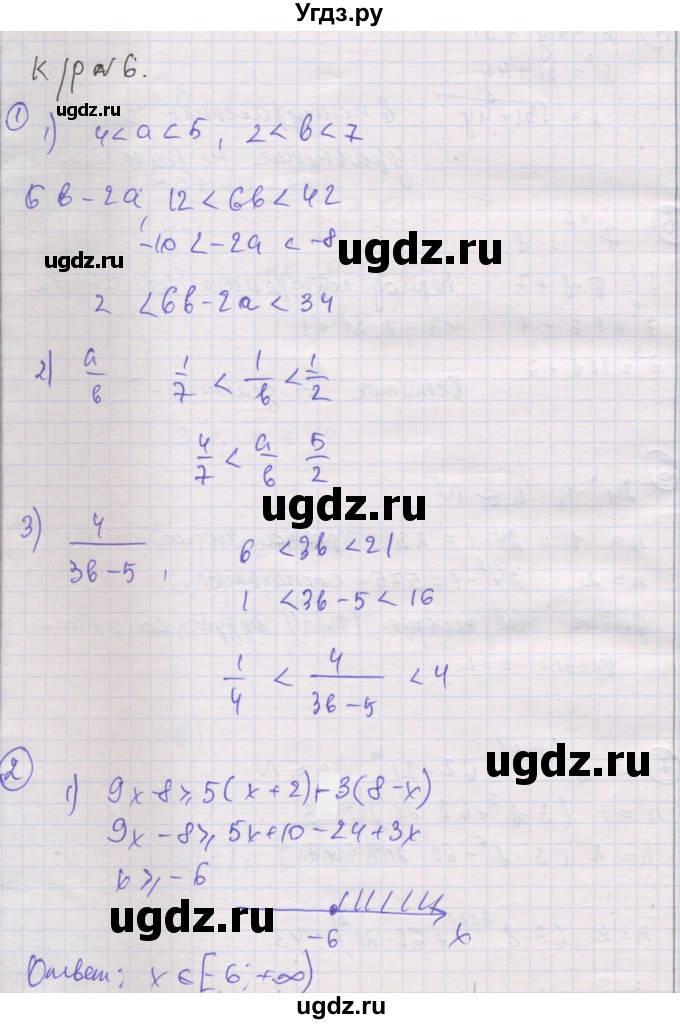 Угдз.ру
К/р №6.
① 1) 4 < a < 5, 2 < b < 7
6b - 2a, 12 < 6b < 42
-10 < -2a < -8
2 < 6b - 2a < 34
2) a/b 1/7 < 1/b < 1/2
4/7 < a/b 5/2
3) 4/(3b - 5), 6 < 3b < 21
1 < 3b - 5 < 16
1/4 < 4/(3b - 5) < 4
② 1) 9x - 8 ≥ 5(x + 2) - 3(8 - x)
9x - 8 ≥ 5x + 10 - 24 + 3x
x ≥ -6
-6 x
Ответ: x ∈ [-6; +∞)
ugdz.ru
ugdz.ru
ugdz.ru
ugdz.ru
ugdz.ru
ugdz.ru
ugdz.ru
ugdz.ru